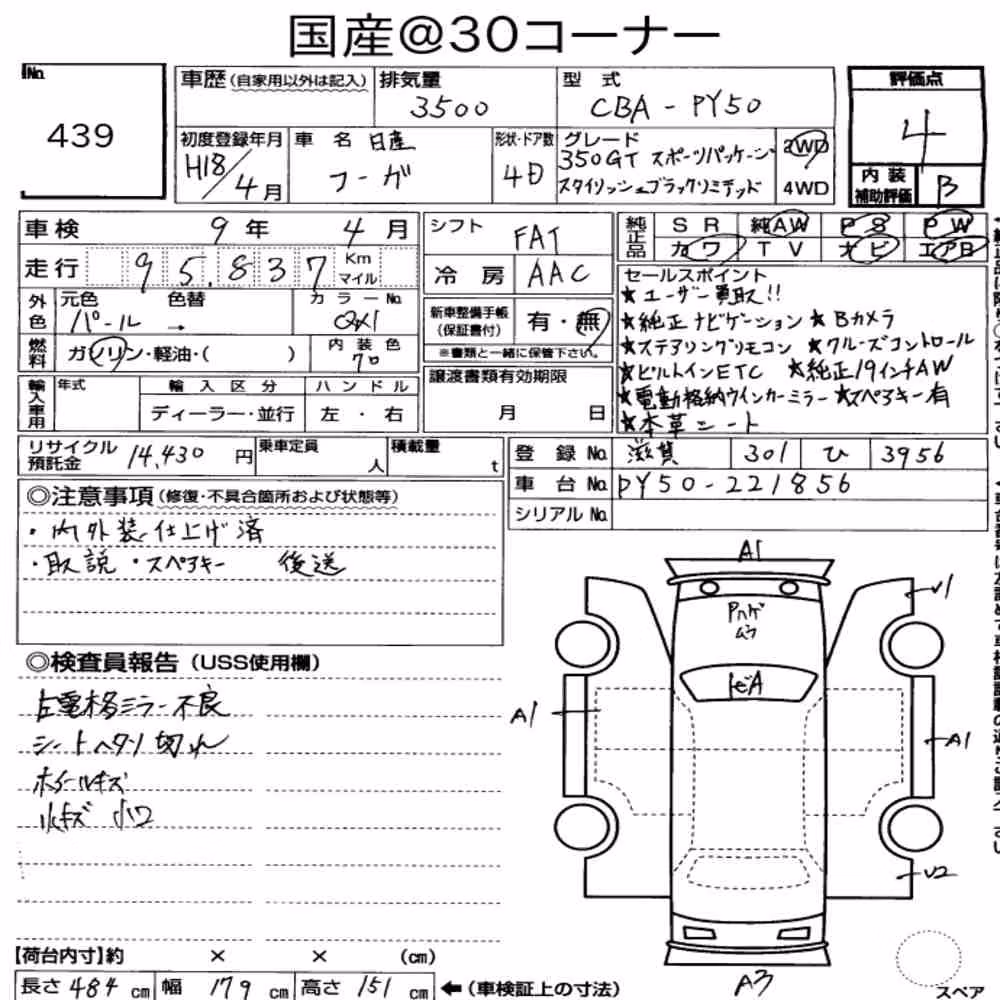 国産@30コーナー
No.
439
車歴(自家用以外は記入) 排気量 3500
型式 CBA-PY50
評価点 4
内装補助評価 B
初度登録年月 H18/4月
車名 日産 フーガ
形状・ドア数 4D
グレード 350GT スポーツパッケージ
スタイリッシュブラックリミテッド
2WD
4WD
車検 9年 4月
走行 95,837 Km マイル
外色 元色 色替 カラーNo.
パール → QX1
燃料 ガソリン・軽油・( )
内装色 クロ
輸入車用 年式 輸入区分 ハンドル
ディーラー・並行 左・右
シフト FAT
冷房 AAC
新車整備手帳(保証書付) 有・無
※書類と一緒に保管下さい。
譲渡書類有効期限
月 日
純正品 SR 純AW PS PW
カワ TV ナビ エアB
セールスポイント
★ユーザー買取!!
★純正ナビゲーション ★Bカメラ
★ステアリングリモコン ★クルーズコントロール
★ビルトインETC ★純正19インチAW
★電動格納ウインカーミラー ★スペアキー有
★本革シート
リサイクル預託金 14,430円
乗車定員 人
積載量 t
登録No. 滋賀 301 ひ 3956
車台No. PY50-221856
シリアルNo.
◎注意事項(修復・不具合箇所および状態等)
・内外装仕上げ済
・取説・スペアキー 後送
◎検査員報告(USS使用欄)
左電格ミラー不良
シートヘタリ 切れ
ホイールキズ
小キズ 小凹
A1
V1
Pハゲ
ムラ
トビA
A1
A1
V2
A3
スペア
【荷台内寸】約 × × (cm)
長さ 484 cm 幅 179 cm 高さ 151 cm ←(車検証上の寸法)